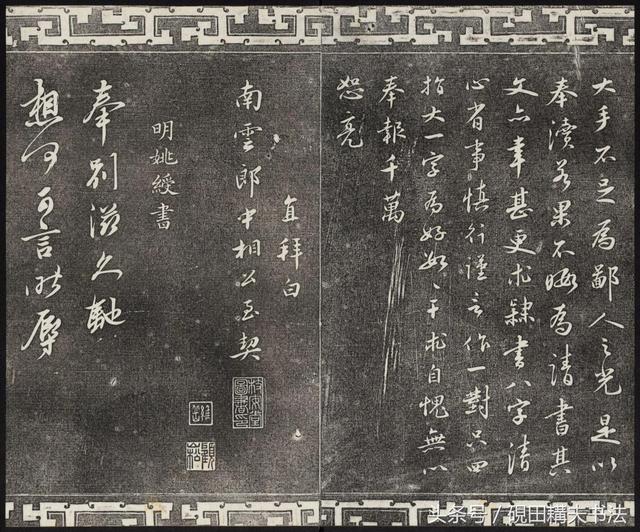 大手不足為鄙人之光是以
奉瀆若果不晦為請書其
文亦幸甚更求隸書八字清
心省事慎行謹言作一對只四
指大一字為好好干求自愧無以
奉報千萬
恕亮
直拜白
南雲郎中相公至契
明姚綬書
奉別滋久馳
想何可言昨辱
頭条号／硯田耤夫书法